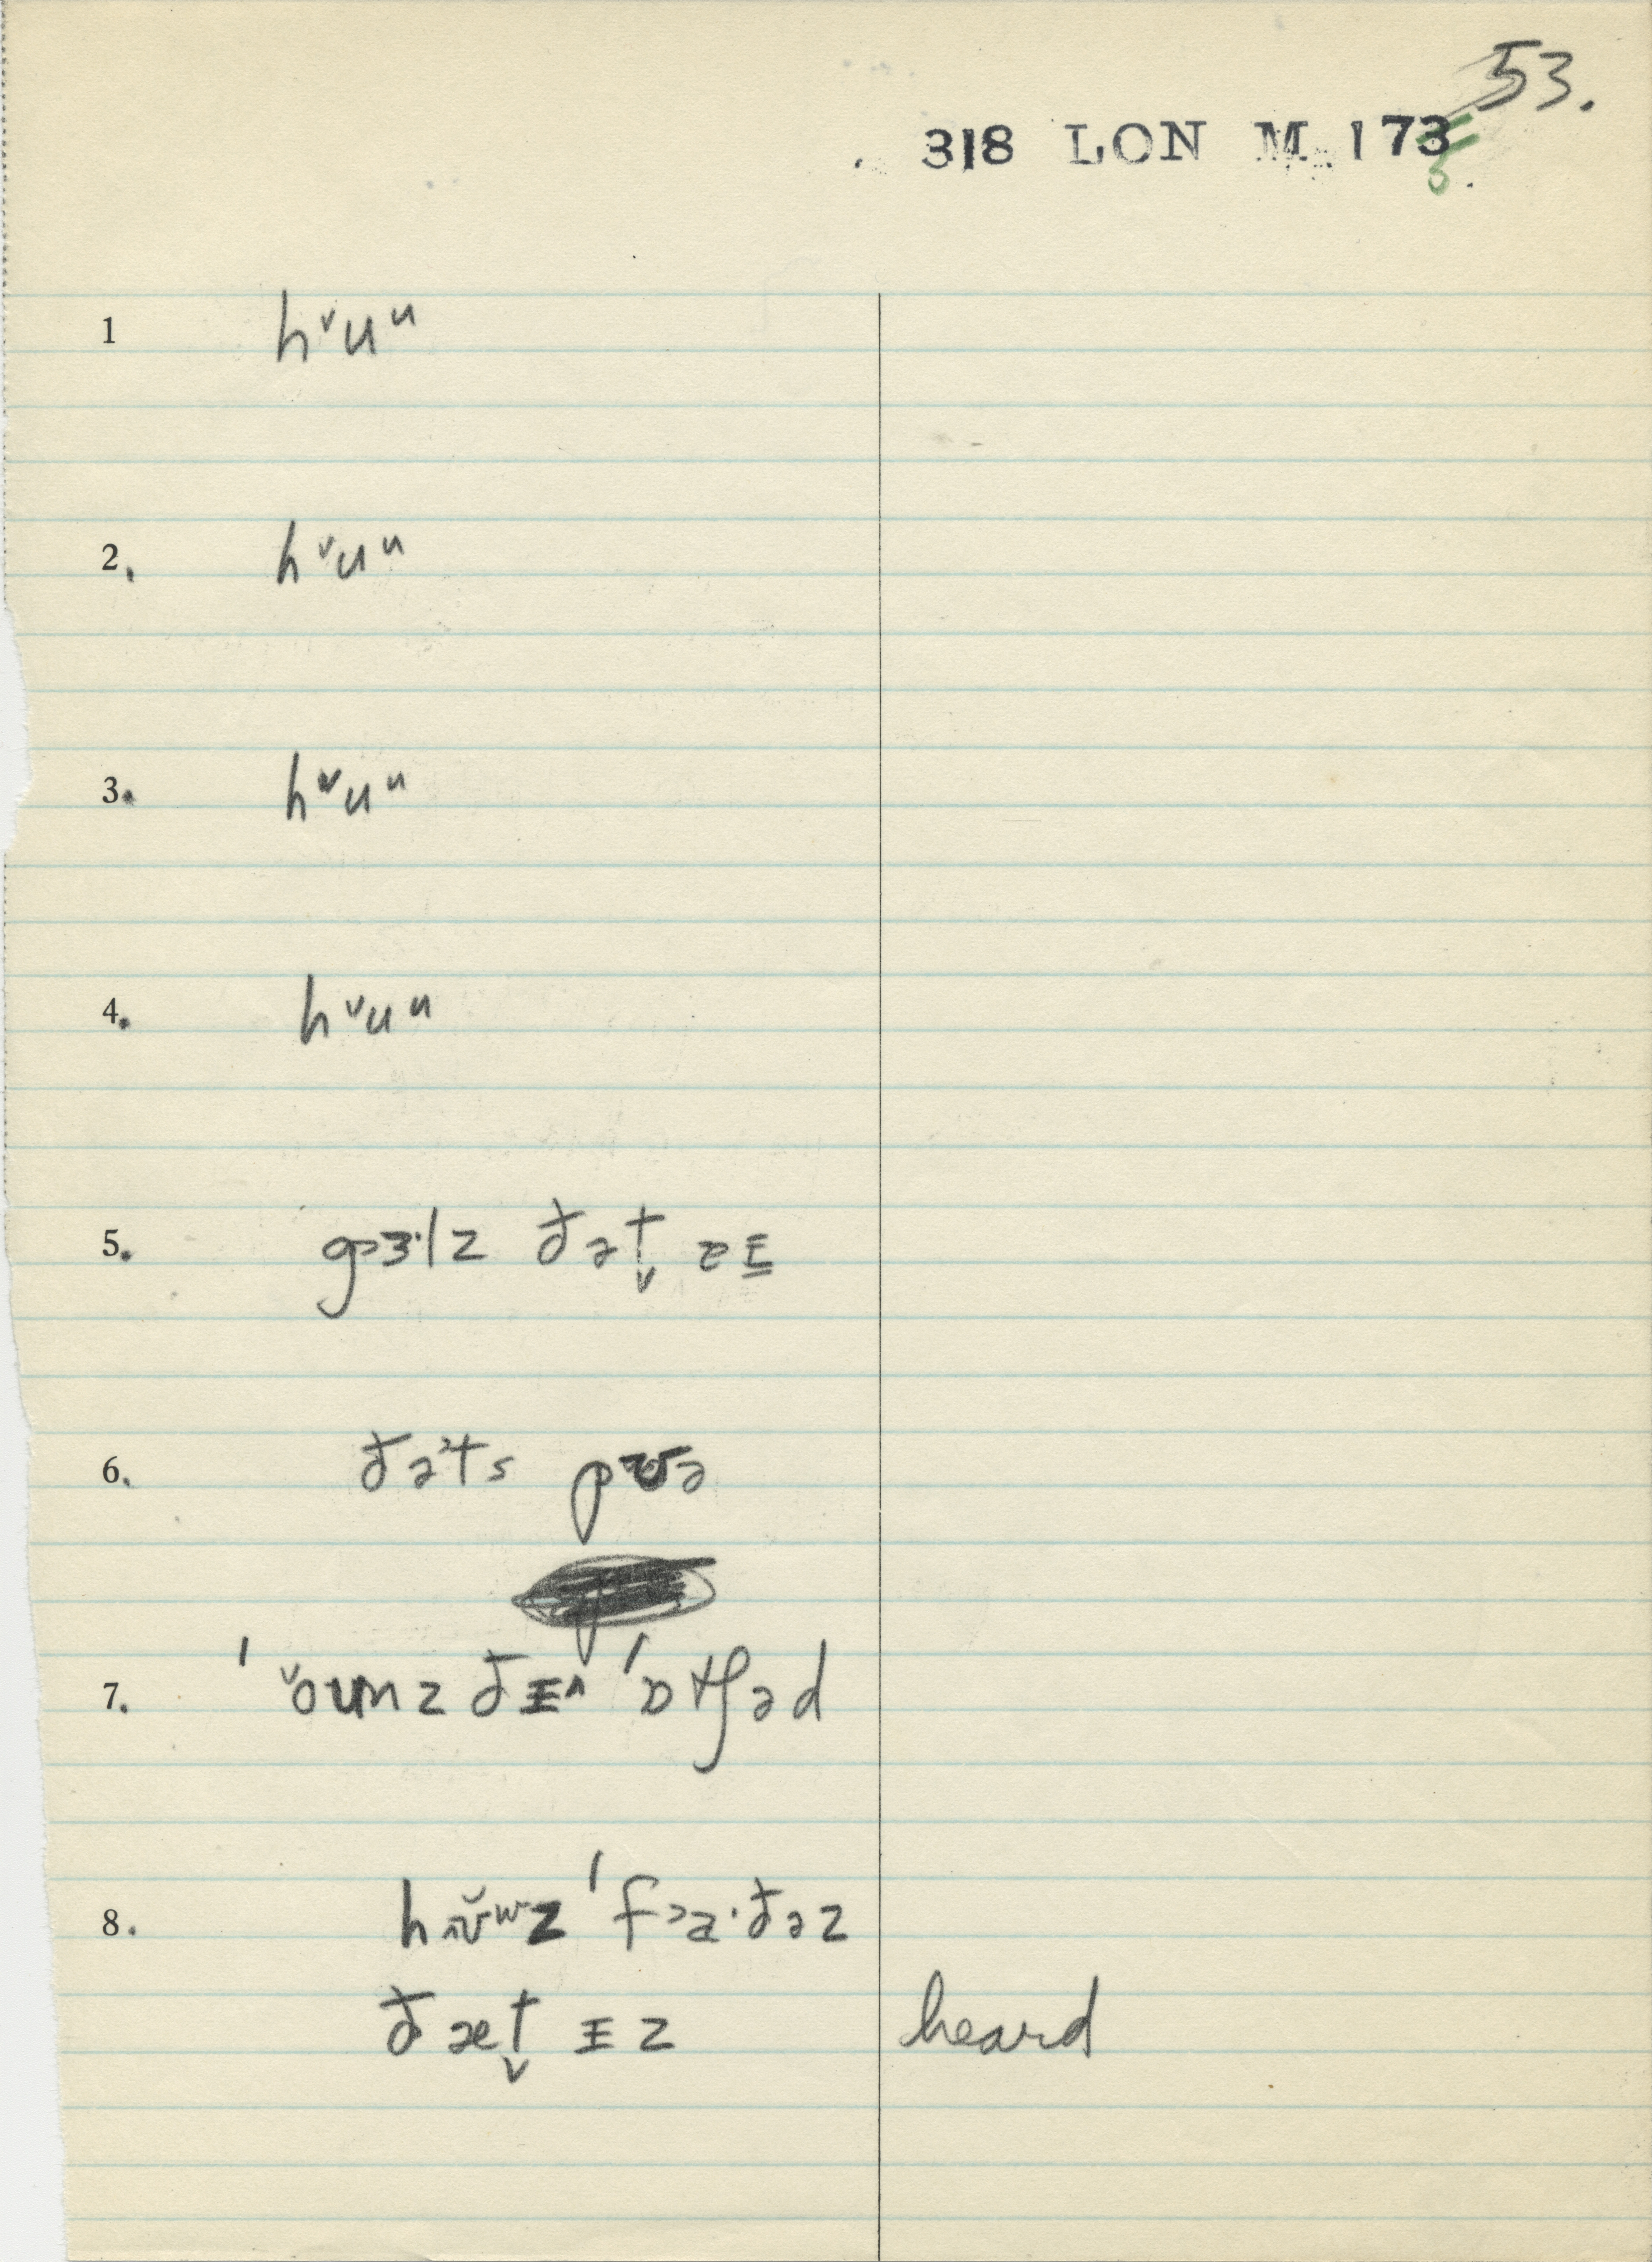 53.
318 LON M 173
5.
1 hᵛuᵘ
2. hᵛuᵘ
3. hᵛuᵘ
4. hᵛuᵘ
5. gɜ·lz ðət̬ ɪ
6. ðəˀts pʊə
7. ˈ ˇoʊnz ðɪ^ ˈɒtʃəd
8. hʊʷz ˈfɑ·ðəz
ðæt̬ ɪz heard